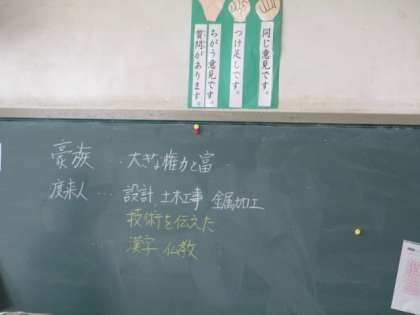 同じ意見です。
つけ足しです。
ちがう意見です。
質問があります。
豪族 … 大きな権力と富
渡来人 … 設計 土木工事 金属加工
技術を伝えた
漢字 仏教